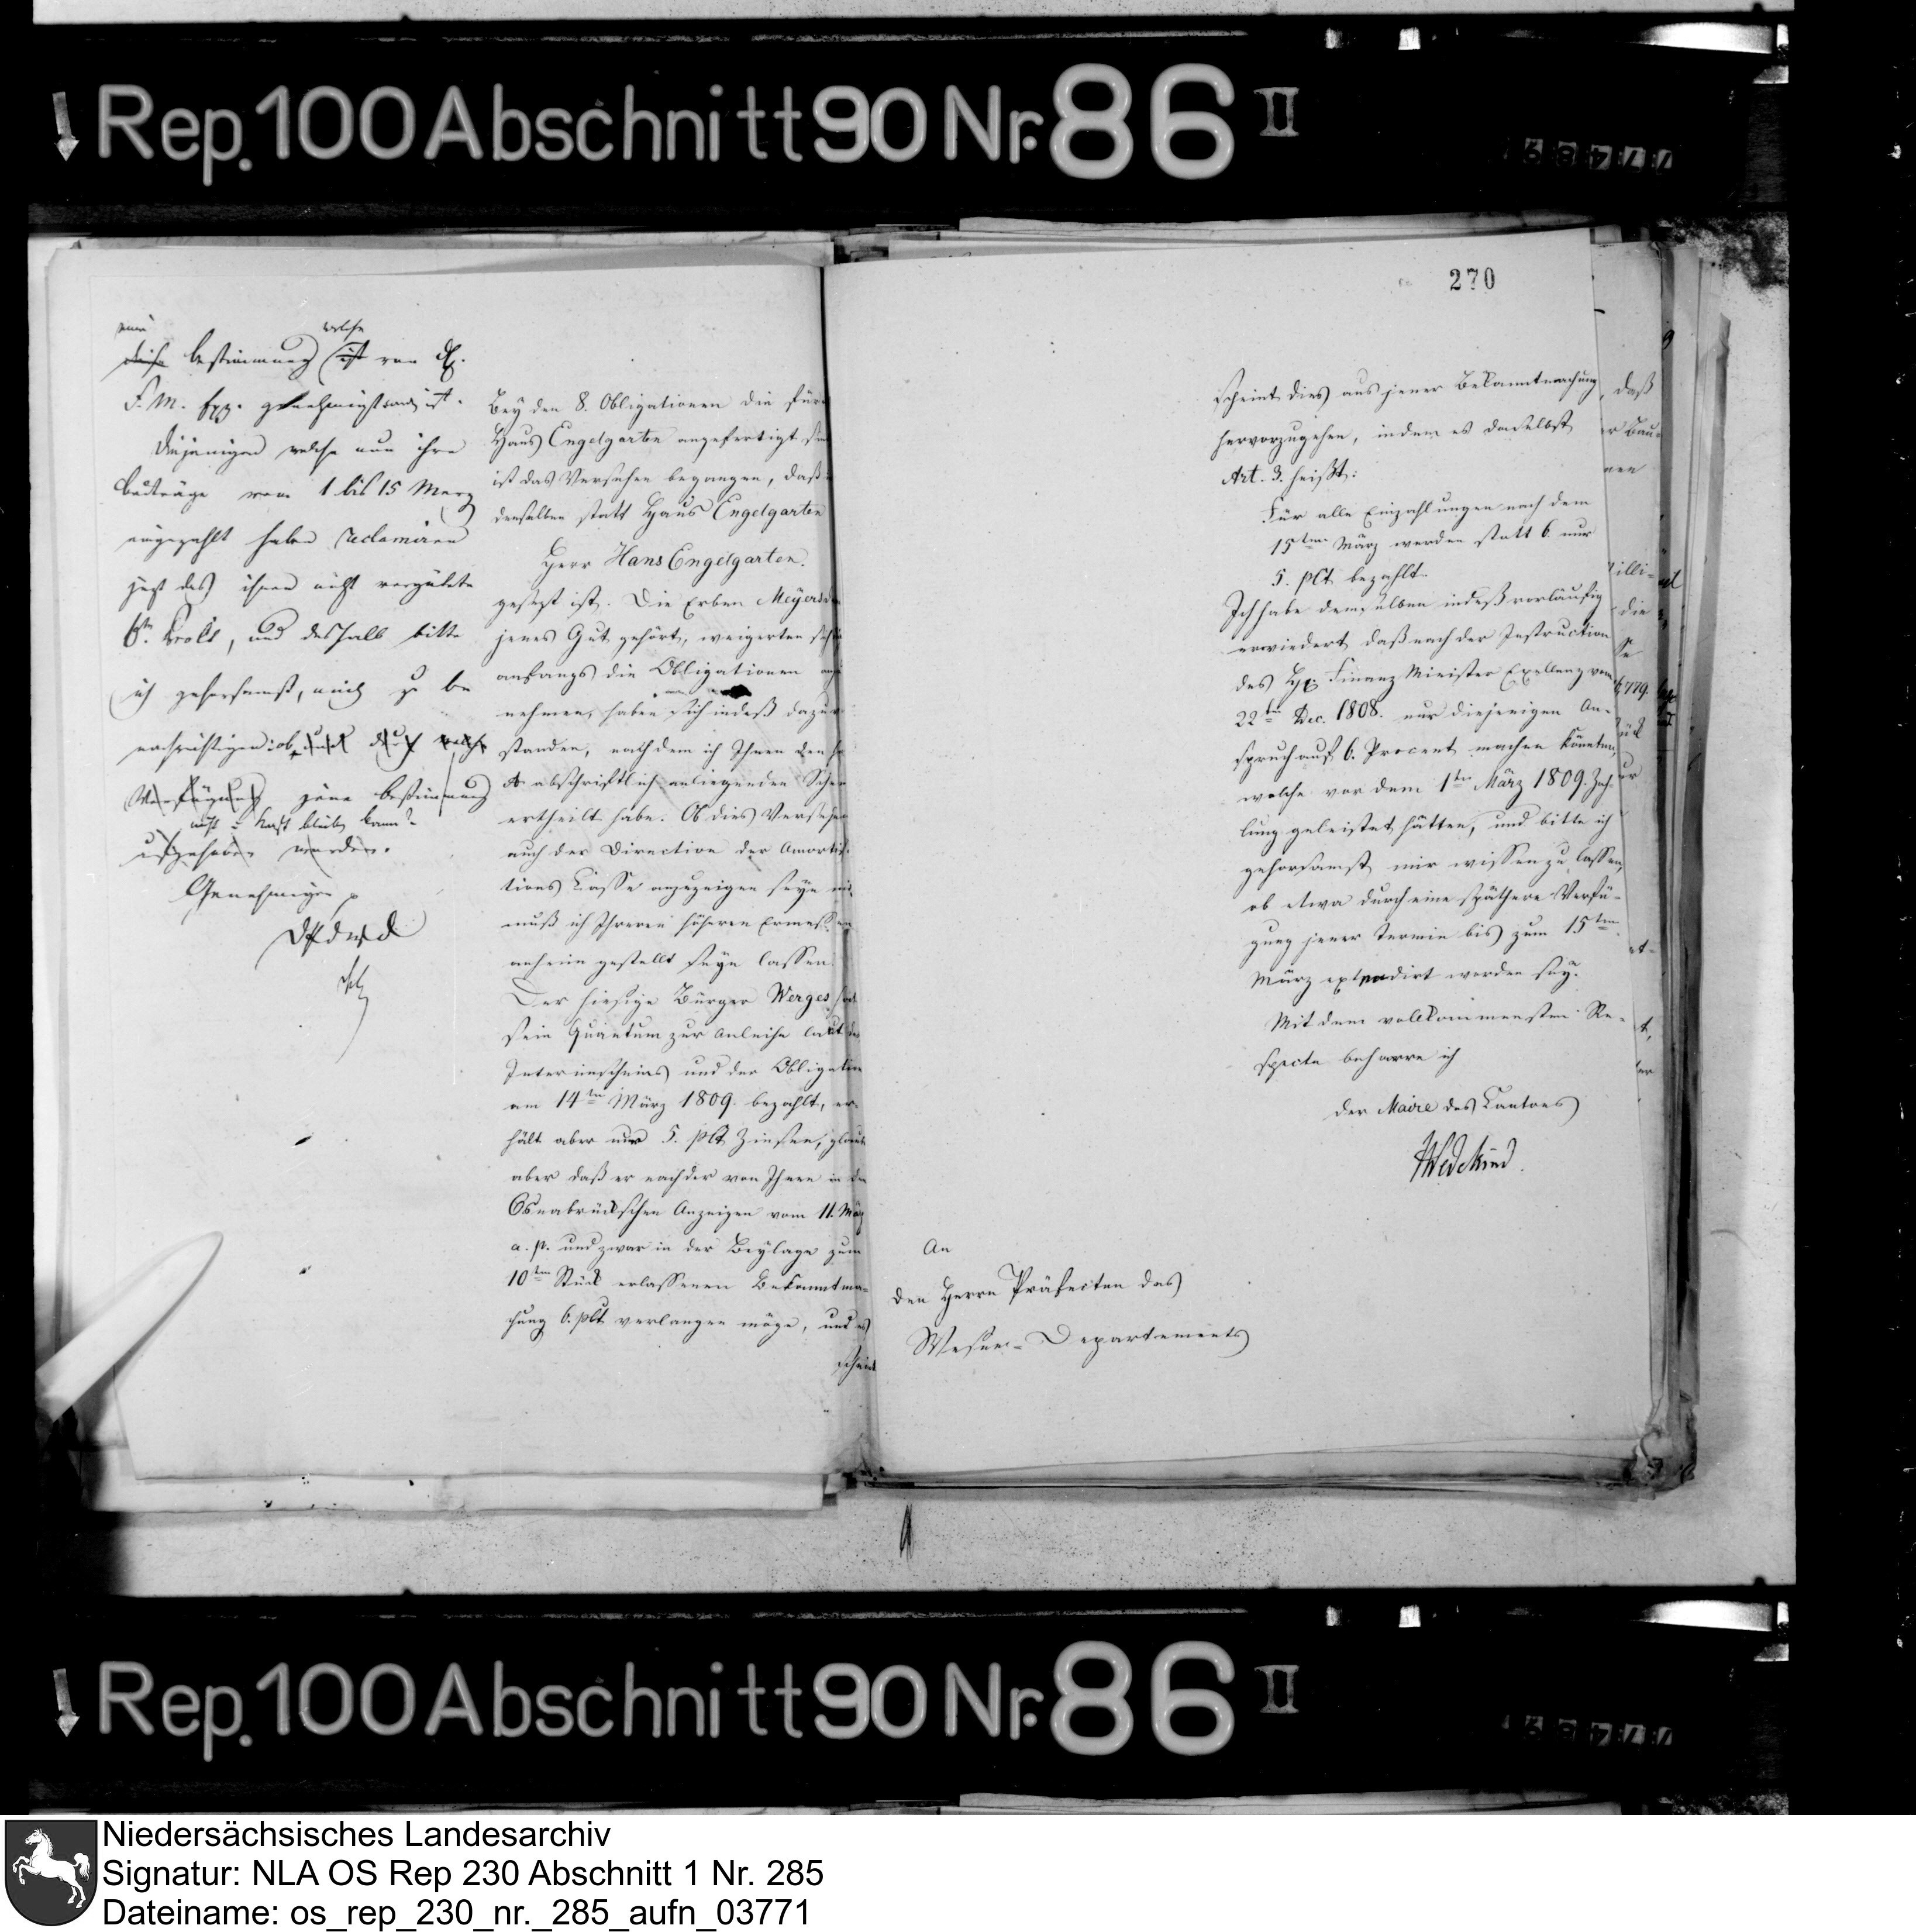 Rep. 100 Abschnitt 90 Nr. 86 II
270
welche
Bestimmung ist von
F. M. Exz. genehmigt ist.
diejenigen welche nun ihre
Beiträge vom 1 bis 15 Merz
eingezahlt haben reclamiren
jezt das ihnen nicht vergütete
6te Prct, und deshalb bitte
ich gehorsamst, mich zu be
nachrichtigen: ob durch welche
Verfügung jene Bestimmung
nicht kraft bleiben kann?
aufgehoben worden.
Genehmigen p
Bey den 8. Obligationen die für
Haus Engelgarten angefertigt sind
ist das Versehen begangen, daß
denselben statt Haus Engelgarten
Herr Hans Engelgarten.
gesezt ist. Die Erben Meyer
jenes Gut gehört, weigerten sich
anfangs die Obligationen
nehmen, haben sich indeß dazu
standen, nachdem ich Ihnen den
A abschriftlich anliegenden Schein
ertheilt habe. Ob dies Versehen
auch der Direction der Amortisa-
tions Casse anzuzeigen seyn
muß ich Ihrem höheren Ermessen
anheim gestellt seyn lassen.
Der hiesige Bürger Werges hat
sein Quantum zur Anleihe laut des
Interimscheins und der Obligation
am 14ten März 1809. bezahlt, er-
hält aber nur 5. pCt Zinsen, glaubt
aber daß er nach der von Ihnen in den
Osnabrückschen Anzeigen vom 11. März
a. p. und zwar in der Beylage zum
10ten Stück erlassenen Bekanntma-
chung 6. pCt verlangen möge, und es
scheint
scheint dies aus jener Bekanntmachung
hervorzugehen, indem es daselbst
Art. 3. heißt:
Für alle Einzahlungen nach dem
15ten März werden statt 6. nur
5. pCt bezahlt.
Ich habe demselben indeß vorläufig
erwiedert daß nach der Instruction
des H. Finanz Minister Exellenz vom
22ten Dec. 1808. nur diejenigen An-
spruch auf 6. Procent machen könnten,
welche vor dem 1ten März 1809. Zah-
lung geleistet hätten, und bitte ich
gehorsamst mir wissen zu lassen,
ob etwa durch eine späthere Verfü-
gung jener Termin bis zum 15ten
März extendirt worden sey.
Mit dem vollkommensten Re-
specte beharre ich
der Maire des Cantons
Wedekind.
An
den Herrn Präfecten des
Weser-Departements
Rep. 100 Abschnitt 90 Nr. 86 II
Niedersächsisches Landesarchiv
Signatur: NLA OS Rep 230 Abschnitt 1 Nr. 285
Dateiname: os_rep_230_nr._285_aufn_03771